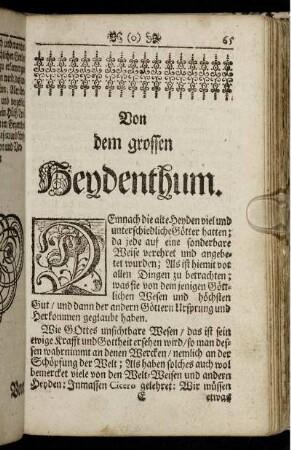 (o) 65
Von
dem grossen
Heydenthum.
DEmnach die alte Heyden viel und
unterschiedliche Götter hatten;
da jede auf eine sonderbare
Weise verehret und angebe-
tet wurden; Als ist hiemit vor
allen Dingen zu betrachten;
was sie von dem jenigen Gött-
lichen Wesen und höchsten
Gut / und dann der andern Göttern Ursprung und
Herkommen geglaubt haben.
Wie GOttes unsichtbare Wesen / das ist sein
ewige Krafft und Gottheit ersehen wird / so man des-
sen wahrnimmt an denen Wercken / nemlich an der
Schöpfung der Welt; Als haben solches auch wol
bemercket viele von den Welt-Weisen und andern
Heyden: Inmassen Cicero gelehret: Wir müssen
E etwas